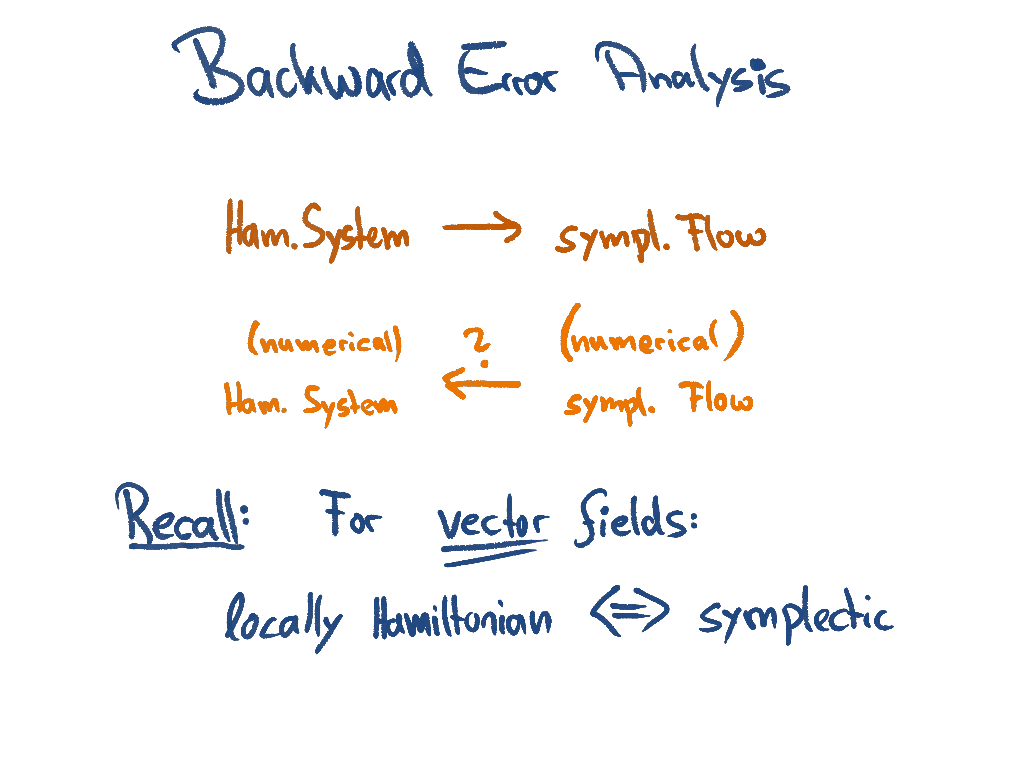 Backward Error Analysis
Ham. System → sympl. Flow
(numerical) ? (numerical)
Ham. System ← sympl. Flow
Recall: For vector fields:
locally Hamiltonian <=> symplectic